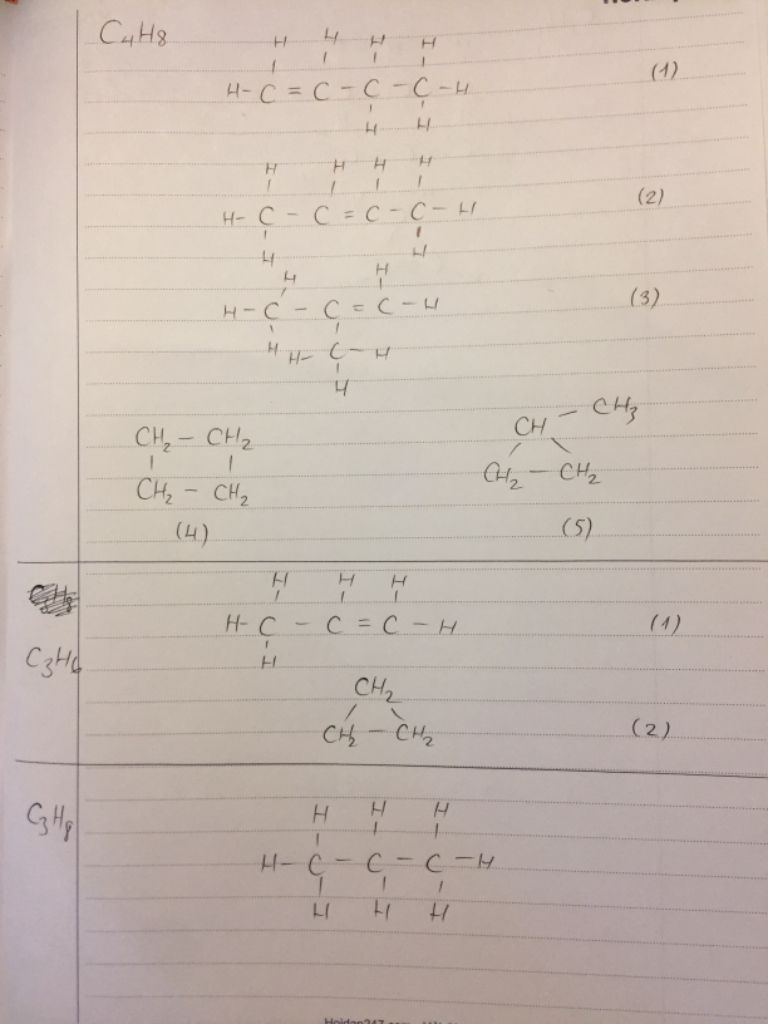 C4H8
H H H H
H - C = C - C - C - H (1)
H H
H H H H
H - C - C = C - C - H (2)
H H
H H
H - C - C = C - H (3)
H H - C - H
H
CH2 - CH2
CH2 - CH2
(4)
CH - CH3
CH2 - CH2
(5)
H H H
H - C - C = C - H (1)
H
C3H6
CH2
CH2 - CH2 (2)
C3H8
H H H
H - C - C - C - H
H H H